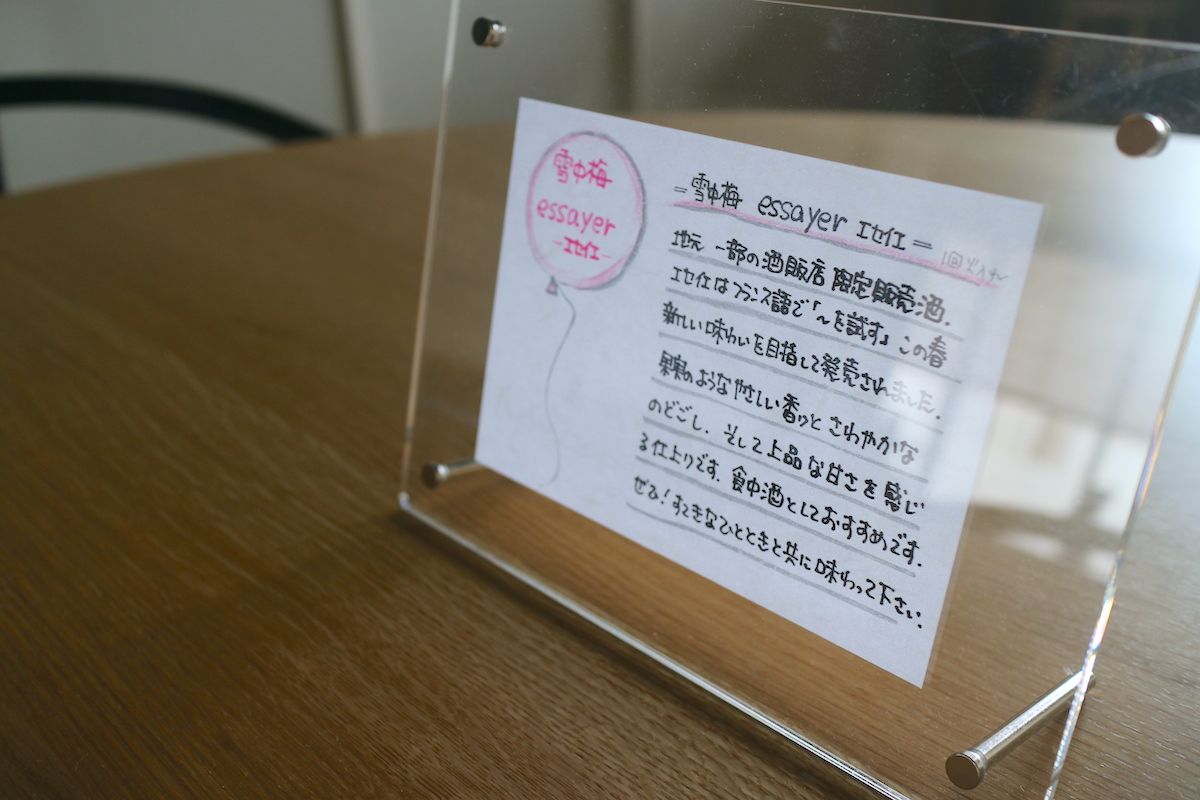 雪中梅
essayer
-エセイエ-
=雪中梅 essayer エセイエ=
1回火入れ
地元 一部の酒販店 限定販売酒.
エセイエはフランス語で「~を試す」この春
新しい味わいを目指して発売されました.
果実のようなやさしい香りと さわやかな
のどごし. そして上品な甘さを感じ
る仕上りです. 食中酒としておすすめです.
ぜひ!すてきなひとときと共に味わって下さい.